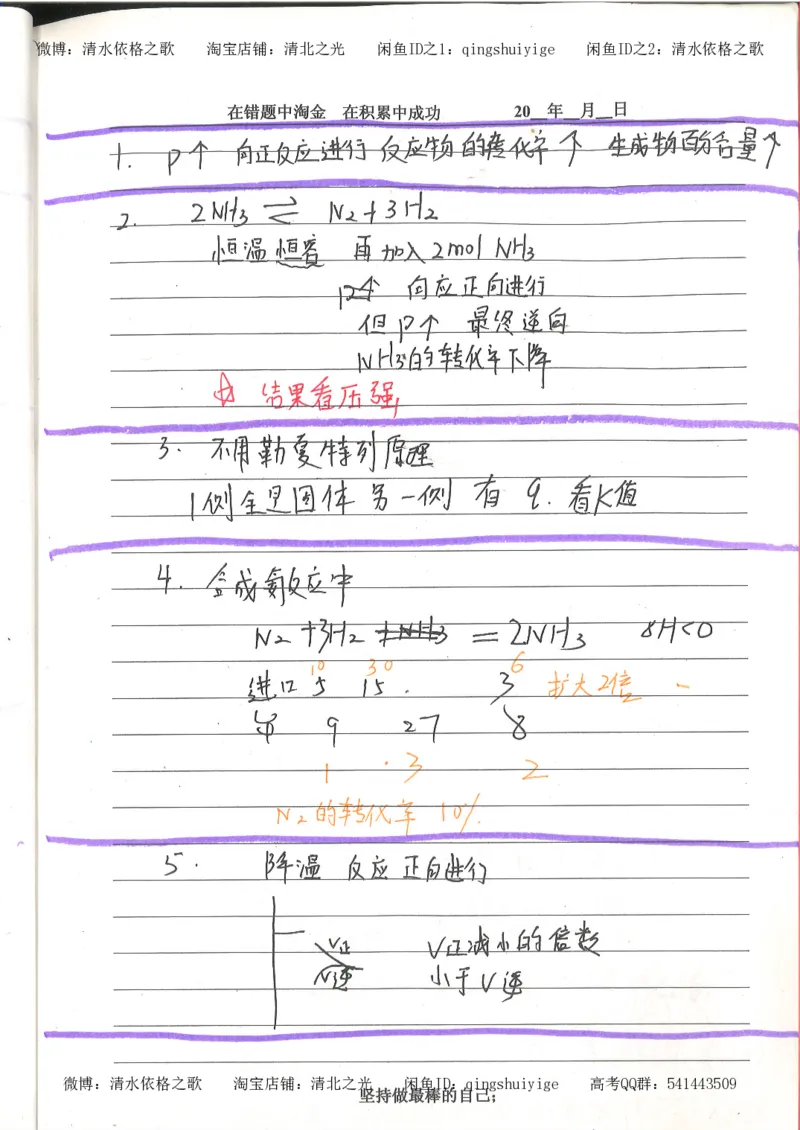 微博：清水依格之歌 淘宝店铺：清北之光 闲鱼ID之1：qingshuiyige 闲鱼ID之2：清水依格之歌
在错题中淘金 在积累中成功 20__年__月__日
1. P↑ 向正反应进行 反应物的转化率↑ 生成物百分含量↑
2. 2NH₃ ⇌ N₂+3H₂
恒温恒容 再加入2mol NH₃
P↑ 向应正向进行
但P↑ 最终逆向
NH₃的转化率下降
☆ 结果看压强,
3. 不用勒夏特列原理
1侧全是固体 另一侧 有 q. 看K值
4. 合成氨反应中
N₂+3H₂ = 2NH₃ 8H<0
10 30 6
进口 5 15. 3 扩大2倍 -
9 27 8
1 · 3 2
N₂的转化率 10%.
5. 降温 反应正向进行
V正 V正减小的倍数
V逆 小于V逆
微博：清水依格之歌 淘宝店铺：清北之光 闲鱼ID：qingshuiyige 高考QQ群：541443509
坚持做最棒的自己;